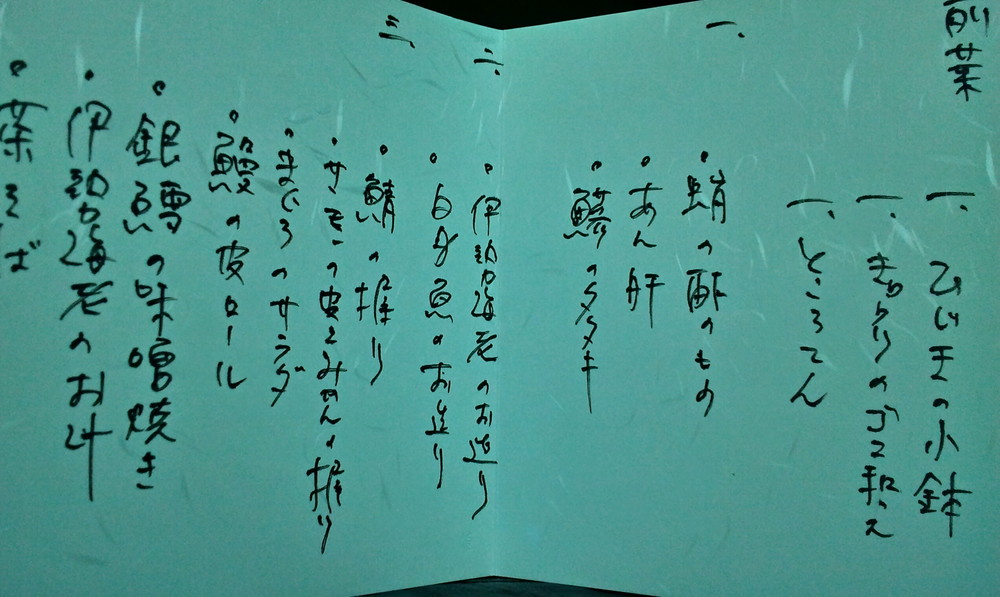 前菜
一、ひじきの小鉢
一、きゅうりのゴマ和え
一、ところてん
一、
・蛸の酢のもの
・あん肝
・鰺のタタキ
二、
・伊勢海老のお造り
・白身魚のお造り
三、
・鯖の握り
・の皮とみかんの握り
・まぐろのサラダ
・鰻の皮ロール
・銀鱈の味噌焼き
・伊勢海老のお汁
・茶そば